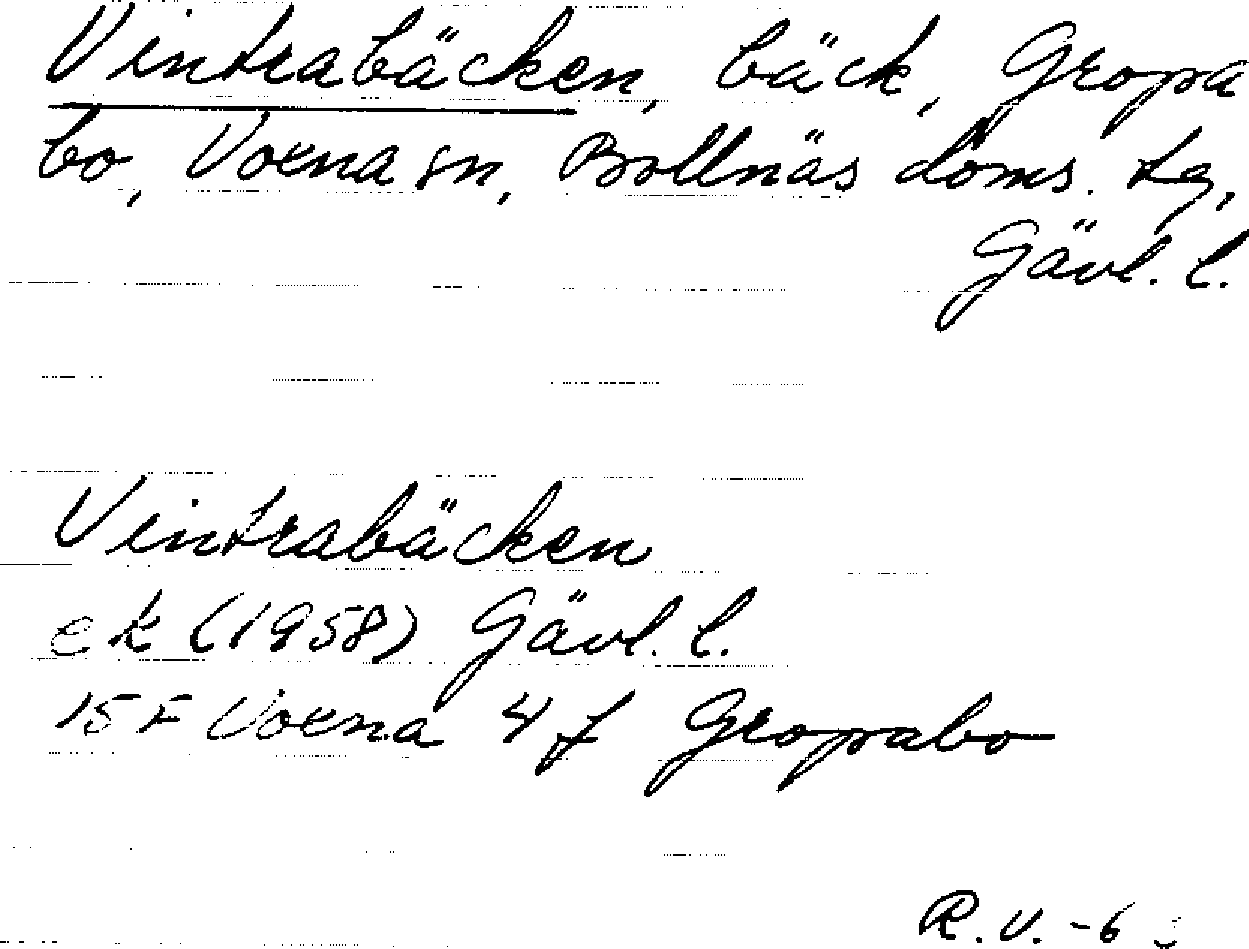 Vintrabäcken, bäck, Gropa
bo, Voxna sn, Bollnäs doms. tg,
Gävl. l.
Vintrabäcken
ek (1958) Gävl. l.
15 F Voxna 4 f Gropabo
R.V.